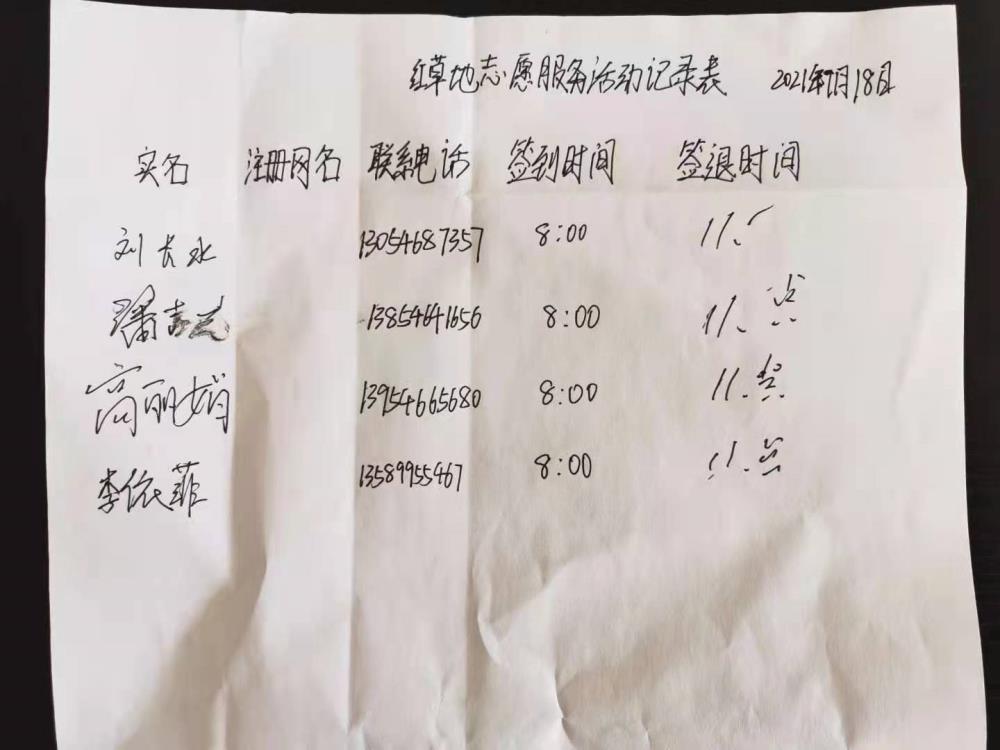 红草地志愿服务活动记录表 2021年7月18日
实名 注册网名 联系电话 签到时间 签退时间
刘长水 13054687357 8:00 11.
潘 13854641656 8:00 11.点
高丽娟 13954665680 8:00 11.点
李依菲 13589955467 8:00 11.点